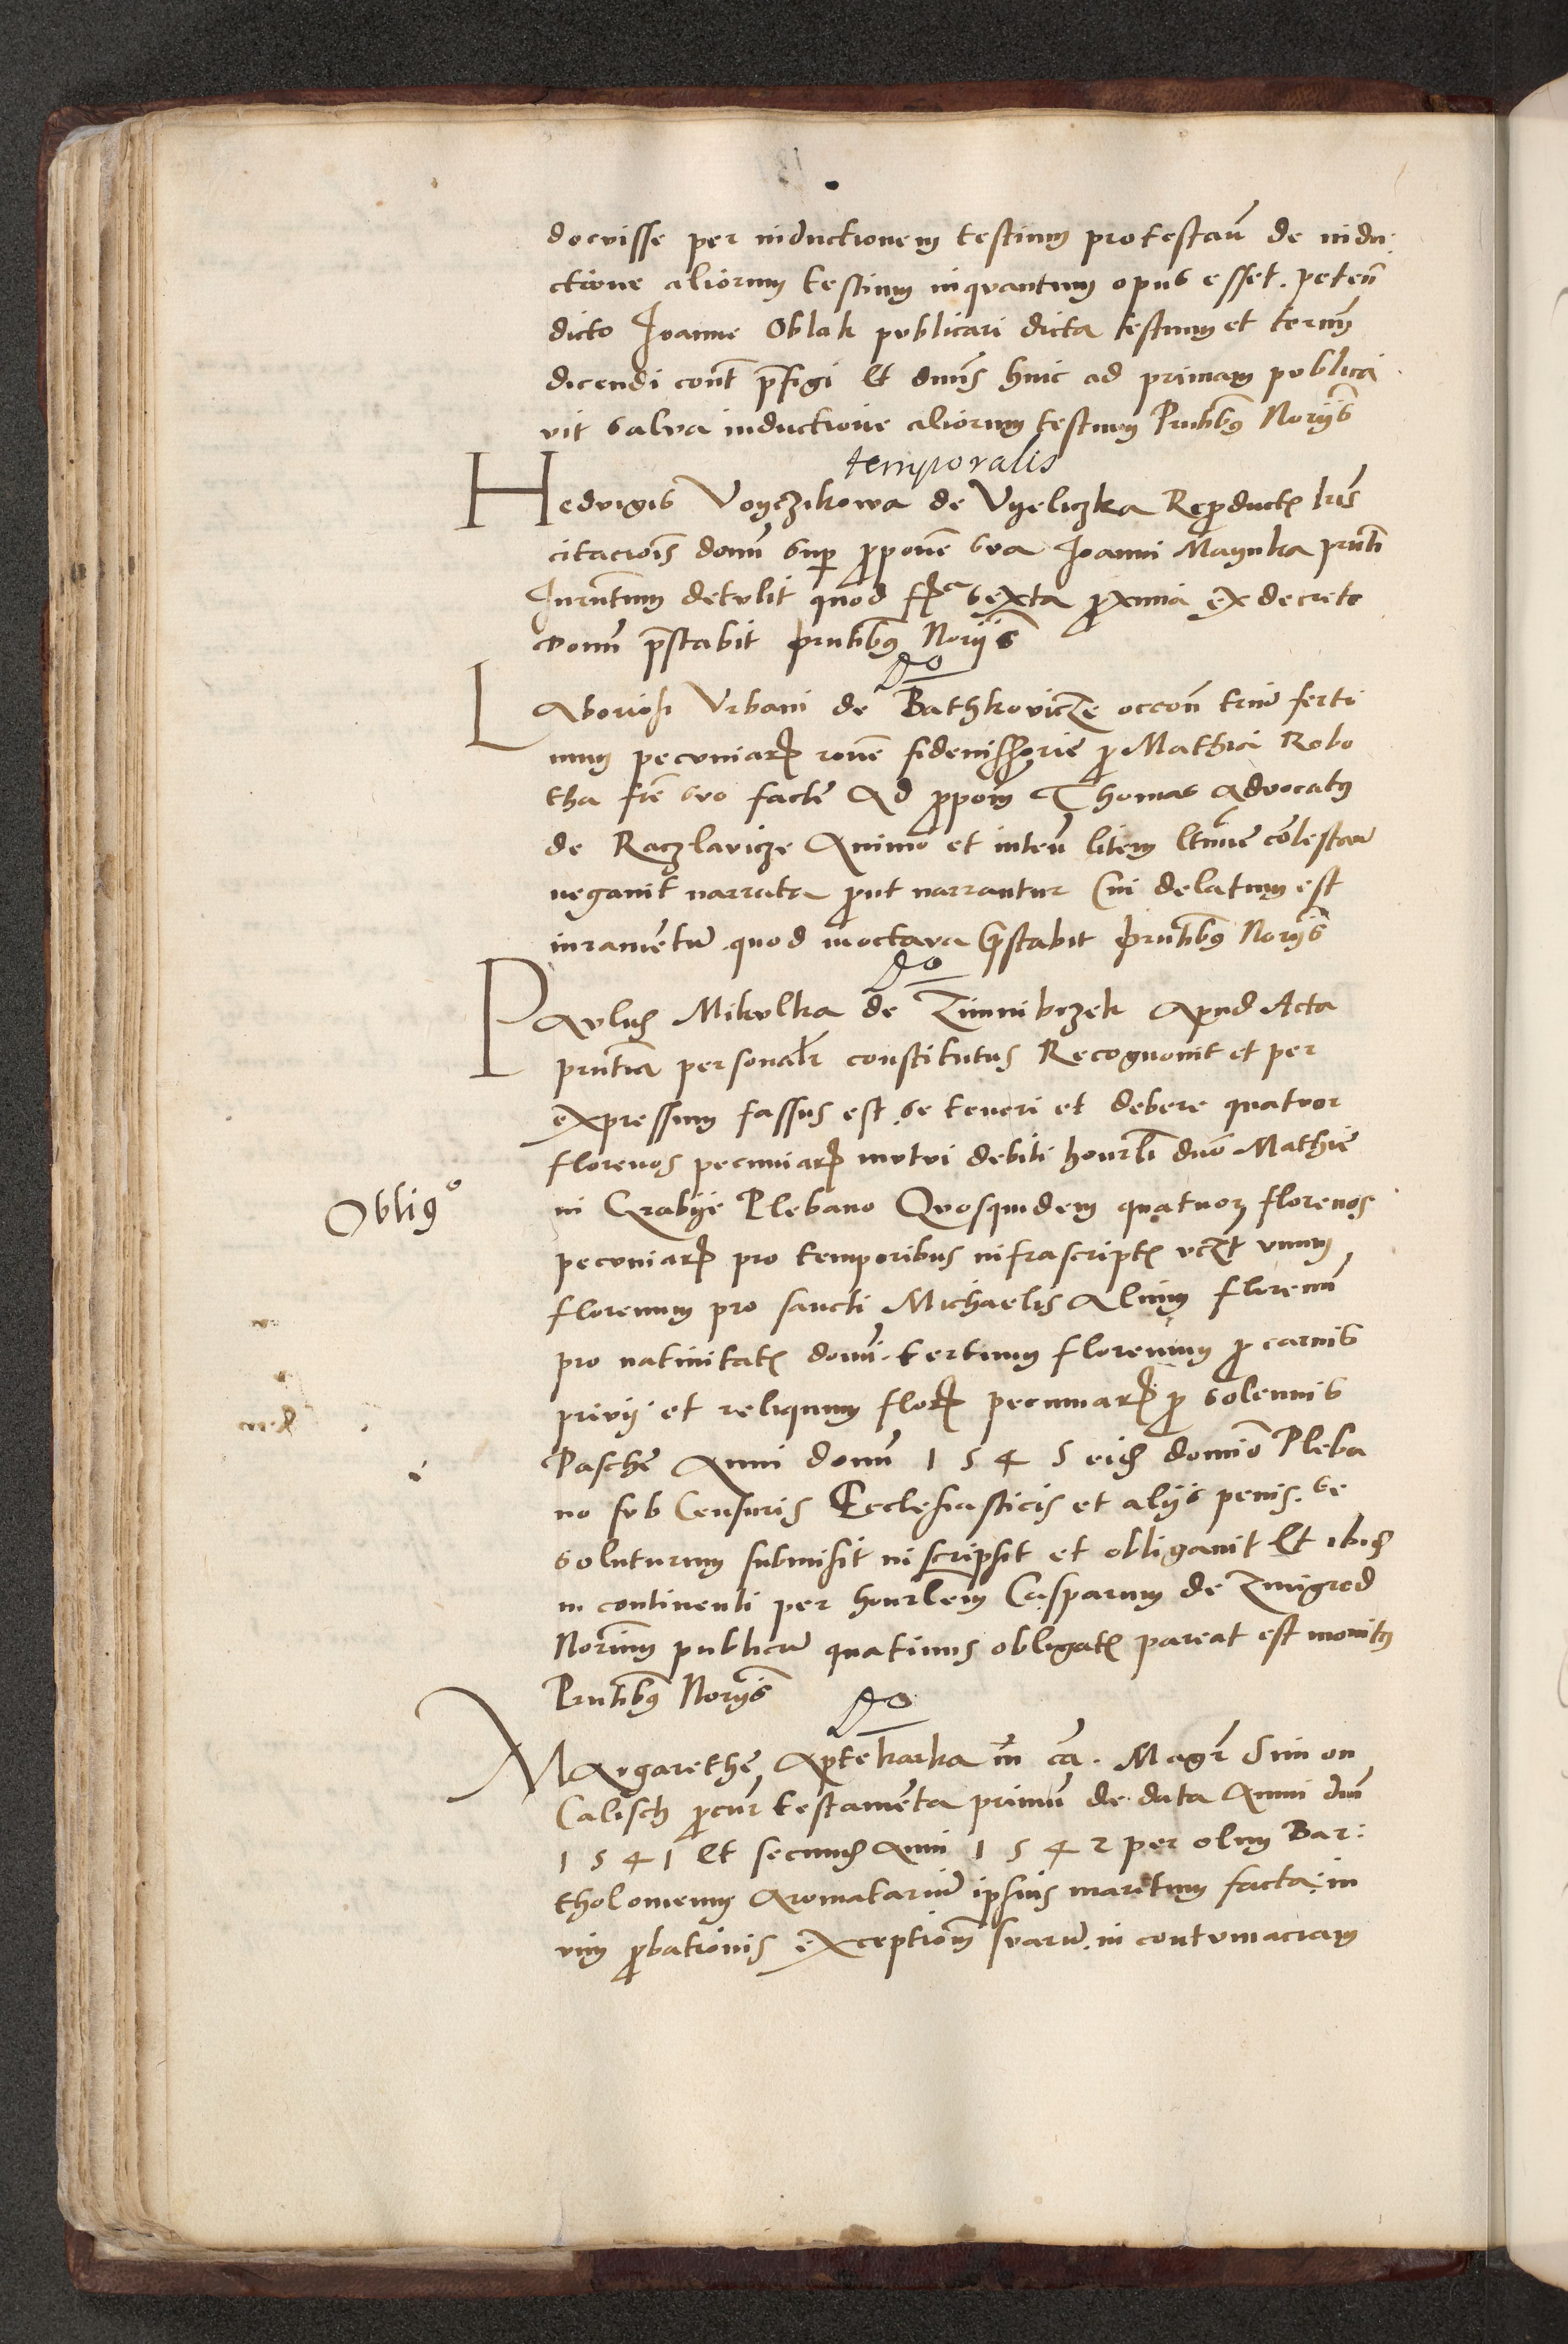 docuisse per inductionem testium protestatur de indu-
ctione aliorum testium inquantum opus esset. peten
dicto Joanne Oblak publicari dicta testium et termin
dicendi cont prefigi Et dnus huic ad primam publica
vit salva inductione aliorum testium Pntibus Noriis
temporalis
Hedvigis Voyczikowa de Vyeliczka Reproducts lris
citacionis domi sup proponem sua Joanni Maynka pnti
Juramtum detulit quod fra sexta proxima ex decreto
domi prestabit pntibus Noriis
do
Laboriosi Urbani de Bathkovicze occon trium ferti
num pecuniar rone fideiussorie pro Mathia Robo
tha fre suo facte Ad propoem Thomas advocatus
de Raczlavicze Animo et inten litem contestan
negavit narrata prout narrantur Cui delatum est
iuramentum quod in octava prestabit pntibus Noriis
do
Paulus Mikulka de Zimni brzek Apud Acta
pntia personalr constitutus Recognovit et per
expressum fassus est se teneri et debere quatuor
florenos pecuniar mutui debiti honrli dno Mathie
Obligo
in Grabye Plebano Quosquidem quatuor florenos
pecuniar pro temporibus infrascripts vczt unum
florenum pro sancti Michaelis Alium florenum
pro nativitats domi. tertium florenum pro carnis
privy et reliquum flor pecuniar pro solennis
Pasche Anni domi 1545 eid domino Pleba
no sub Censuris Ecclesiasticis et alys penis. se
soluturum submisit inscripsit et obligavit Et ibid
in continenti per honrlem Casparum de Zmigrod
Norium publicum quatinus obligats pareat est monitus
Pntibus Noriis
do
Margarethe Aptekarka in ca. Magr Simon
Calisch procur testamenta primum de data Anni dni
1541 Et secund Anni 1542 per olim Bar:
tholomeum Aromatarium ipsius maritum facta in
vim probationis exceptionm suarum in contumaciam